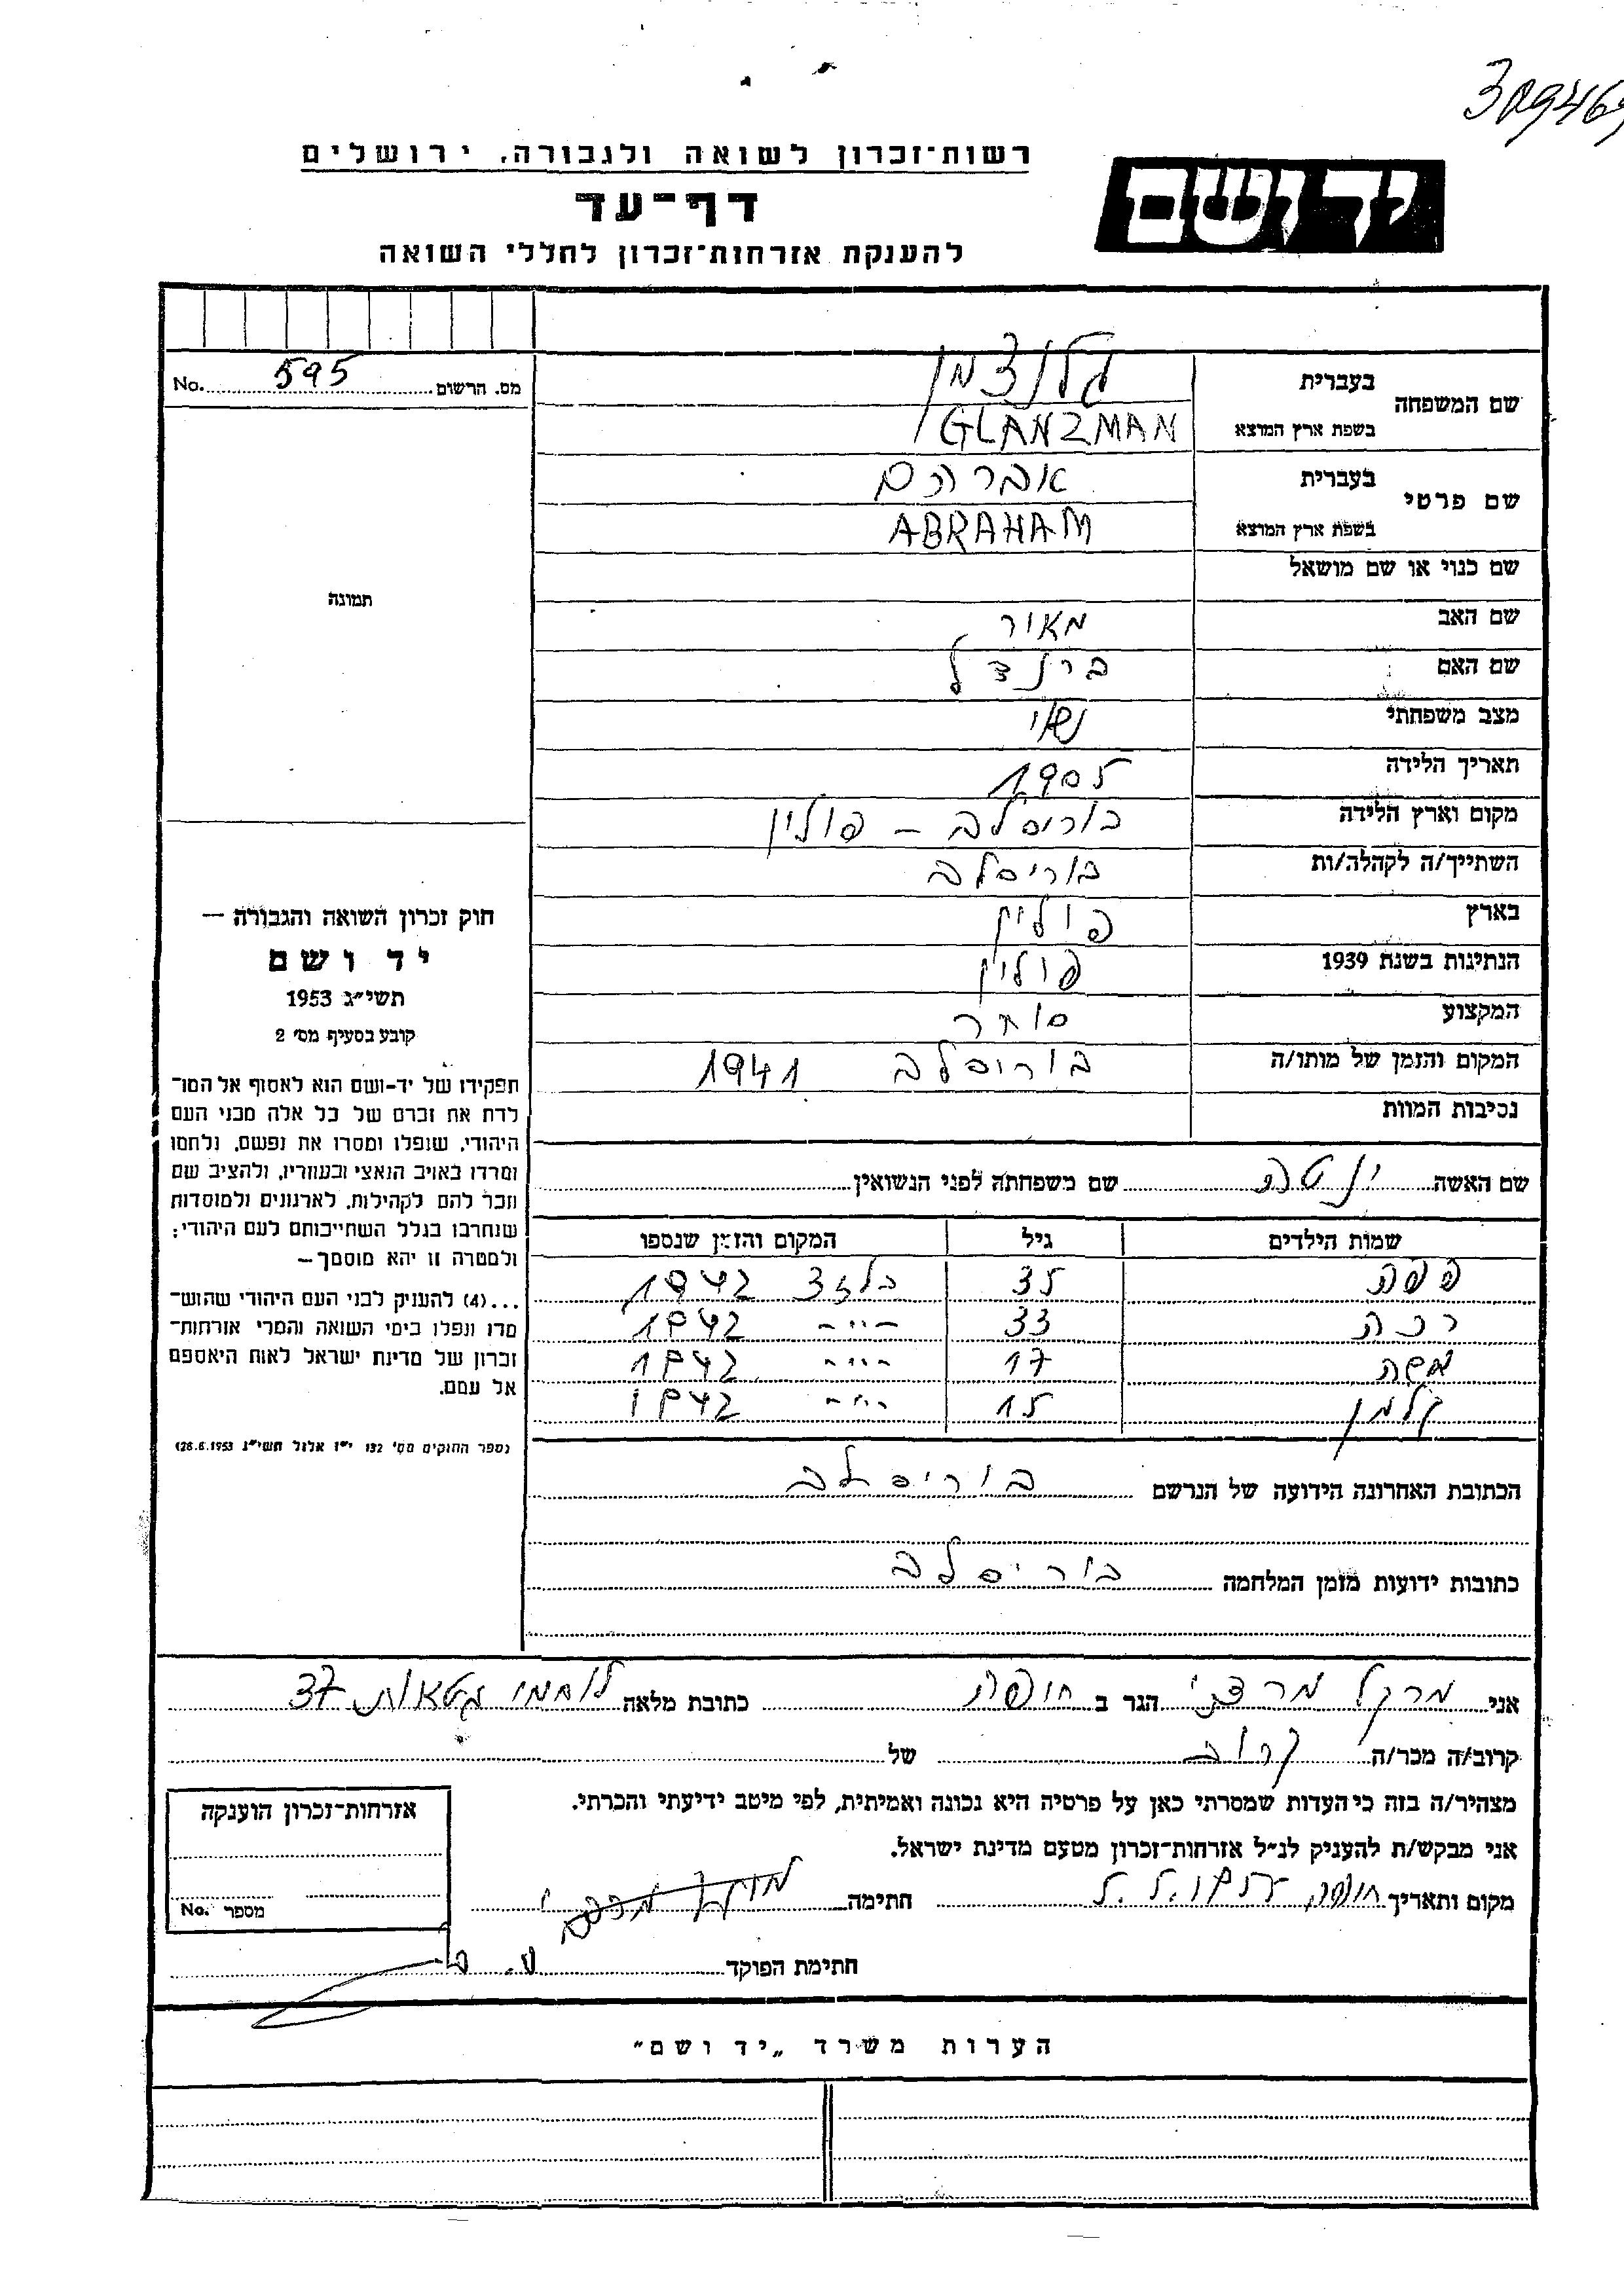 309469
רשות־זכרון לשואה ולגבורה, ירושלים
יד ושם
דף־עד
להענקת אזרחות־זכרון לחללי השואה
שם המשפחה
בעברית גלנצמן
בשפת ארץ המוצא GLANZMAN
שם פרטי
בעברית אברהם
בשפת ארץ המוצא ABRAHAM
שם כנוי או שם מושאל
שם האב מאור
שם האם ברנדל
מצב משפחתי נשוי
תאריך הלידה 1905
מקום וארץ הלידה בוריסלב – פולין
השתייך/ה לקהלה/ות בוריסלב
בארץ פולין
הנתינות בשנת 1939 פולין
המקצוע סוחר
המקום והזמן של מותו/ה בוריסלב 1941
נסיבות המוות
שם האשה ינטה שם משפחתה לפני הנשואין
שמות הילדים גיל המקום והזמן שנספו
פפה 35 בלזץ 1942
רכה 33 –״– 1942
משה 17 –״– 1942
קלמן 15 –״– 1942
הכתובת האחרונה הידועה של הנרשם בוריסלב
כתובות ידועות מזמן המלחמה בוריסלב
מס. הרשום 595 No.
תמונה
חוק זכרון השואה והגבורה –
יד ושם
תשי״ג 1953
קובע בסעיף מס׳ 2
תפקידו של יד-ושם הוא לאסוף אל המו־
לדת את זכרם של כל אלה מבני העם
היהודי, שנפלו ומסרו את נפשם, נלחמו
ומרדו באויב הנאצי ובעוזריו, ולהציב שם
וזכר להם לקהילות, לארגונים ולמוסדות
שנחרבו בגלל השתייכותם לעם היהודי;
ולמטרה זו יהא מוסמך –
...(4) להעניק לבני העם היהודי שהוש־
מדו ונפלו בימי השואה והמרי אזרחות־
זכרון של מדינת ישראל לאות היאספם
אל עמם.
(ספר החוקים מס׳ 132 י״ז אלול תשי״ג 28.8.1953)
אני מרקל מרדכי הגר ב חיפה כתובת מלאה לוחמי גטאות 37
קרוב/ה מכר/ה קרוב של
מצהיר/ה בזה כי העדות שמסרתי כאן על פרטיה היא נכונה ואמיתית, לפי מיטב ידיעתי והכרתי.
אני מבקש/ת להעניק לנ״ל אזרחות־זכרון מטעם מדינת ישראל.
מקום ותאריך חיפה חתימה
חתימת הפוקד
אזרחות־זכרון הוענקה
מספר No.
הערות משרד „יד ושם״